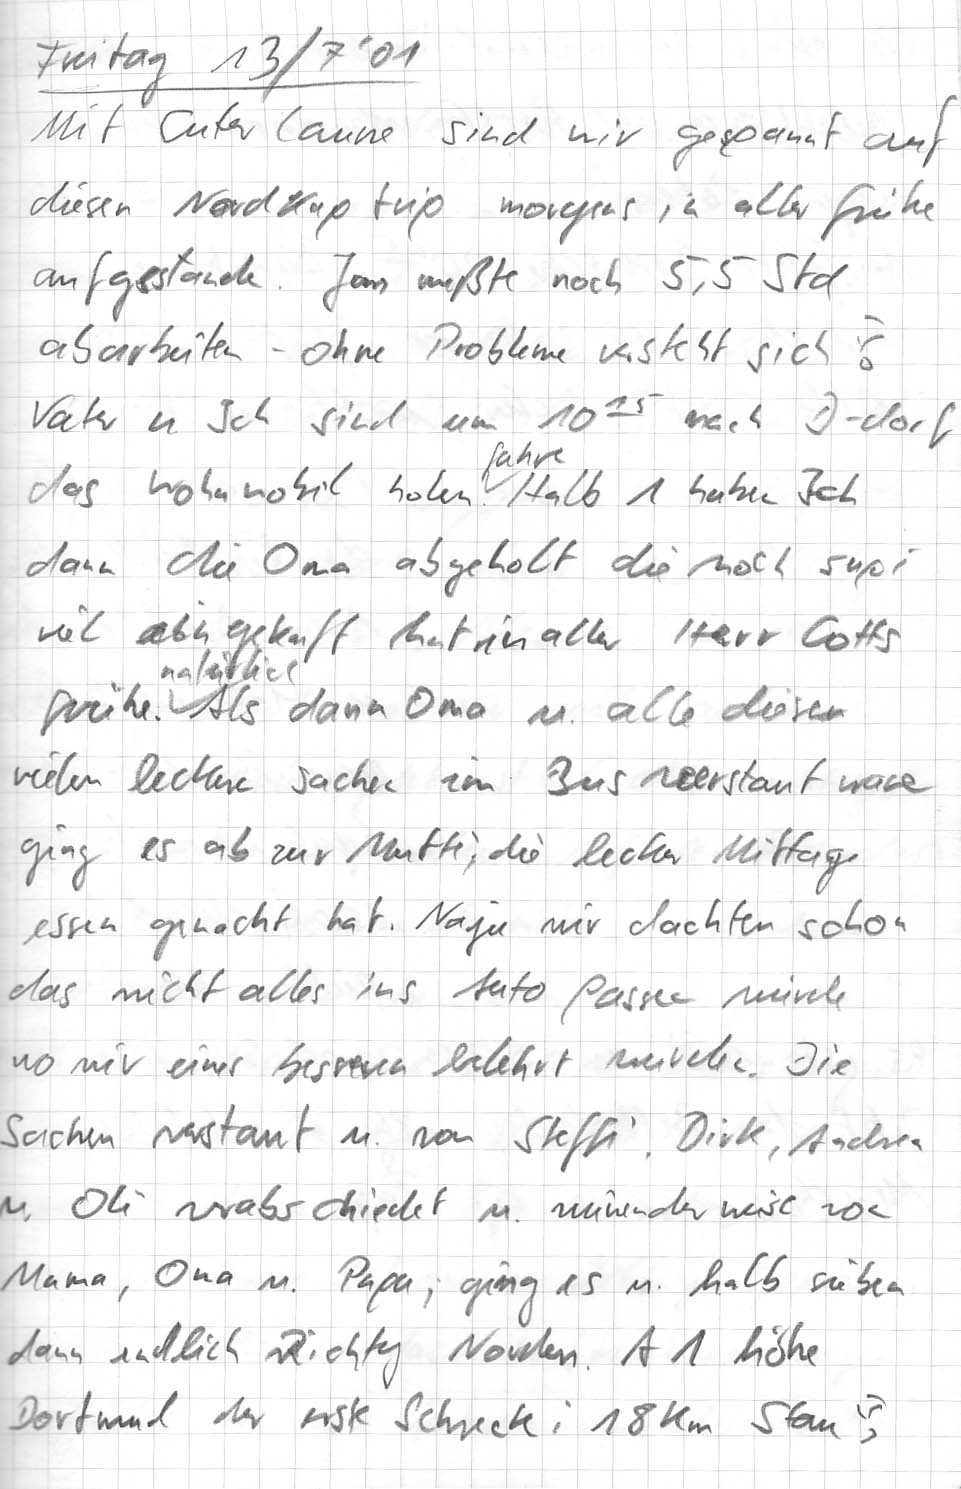 Freitag 13/7'01
Mit Guter Laune sind wir gespannt auf
diesen Nordkap trip morgens in aller frühe
aufgestande. Jan mußte noch 5,5 Std
abarbeiten - ohne Probleme versteht sich
Vater u Ich sind um 10 15 nach D-dorf
das Wohnmobil holen. fahre Halb 1 habe Ich
dann die Oma abgeholt die noch supi
viel eingekauft hat in aller Herr Gotts
frühe. natürlich Als dann Oma u. alle diesen
vielen leckere sachen im Bus verstaut ware
ging es ab zur Mutti, die lecker Mittags
essen gemacht hat. Naja wir dachten schon
das nicht alles ins Auto passen würde
wo wir eines besseren belehrt wurden. Die
Sachen verstaut u. von Steffi, Dirk, Andrea
u. Oli verabschiedet u. von
Mama, Oma u. Papa, ging es u. halb sieben
dann endlich Richtg Norden. A1 höhe
Dortmund der erste Schreck: 18 Km Stau